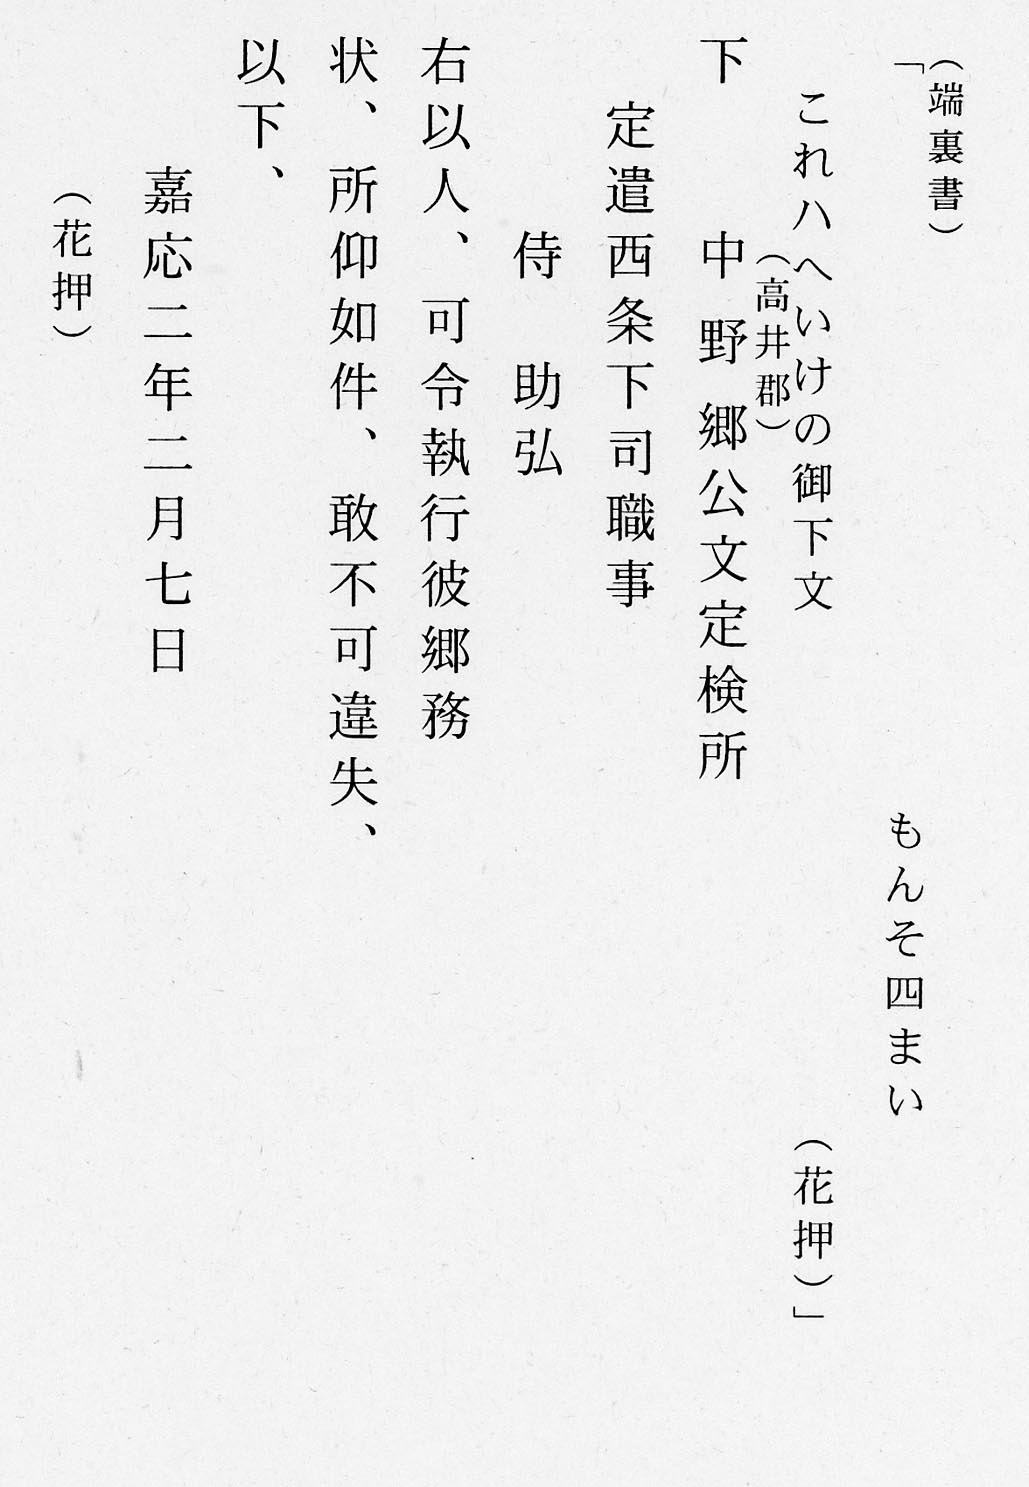 （端裏書）
「もんそ四まい
これハへいけの御下文（花押）」
（高井郡）
下　中野郷公文定検所
定遣西条下司職事
侍　助弘
右以人、可令執行彼郷務
状、所仰如件、敢不可違失、
以下、
嘉応二年二月七日
（花押）